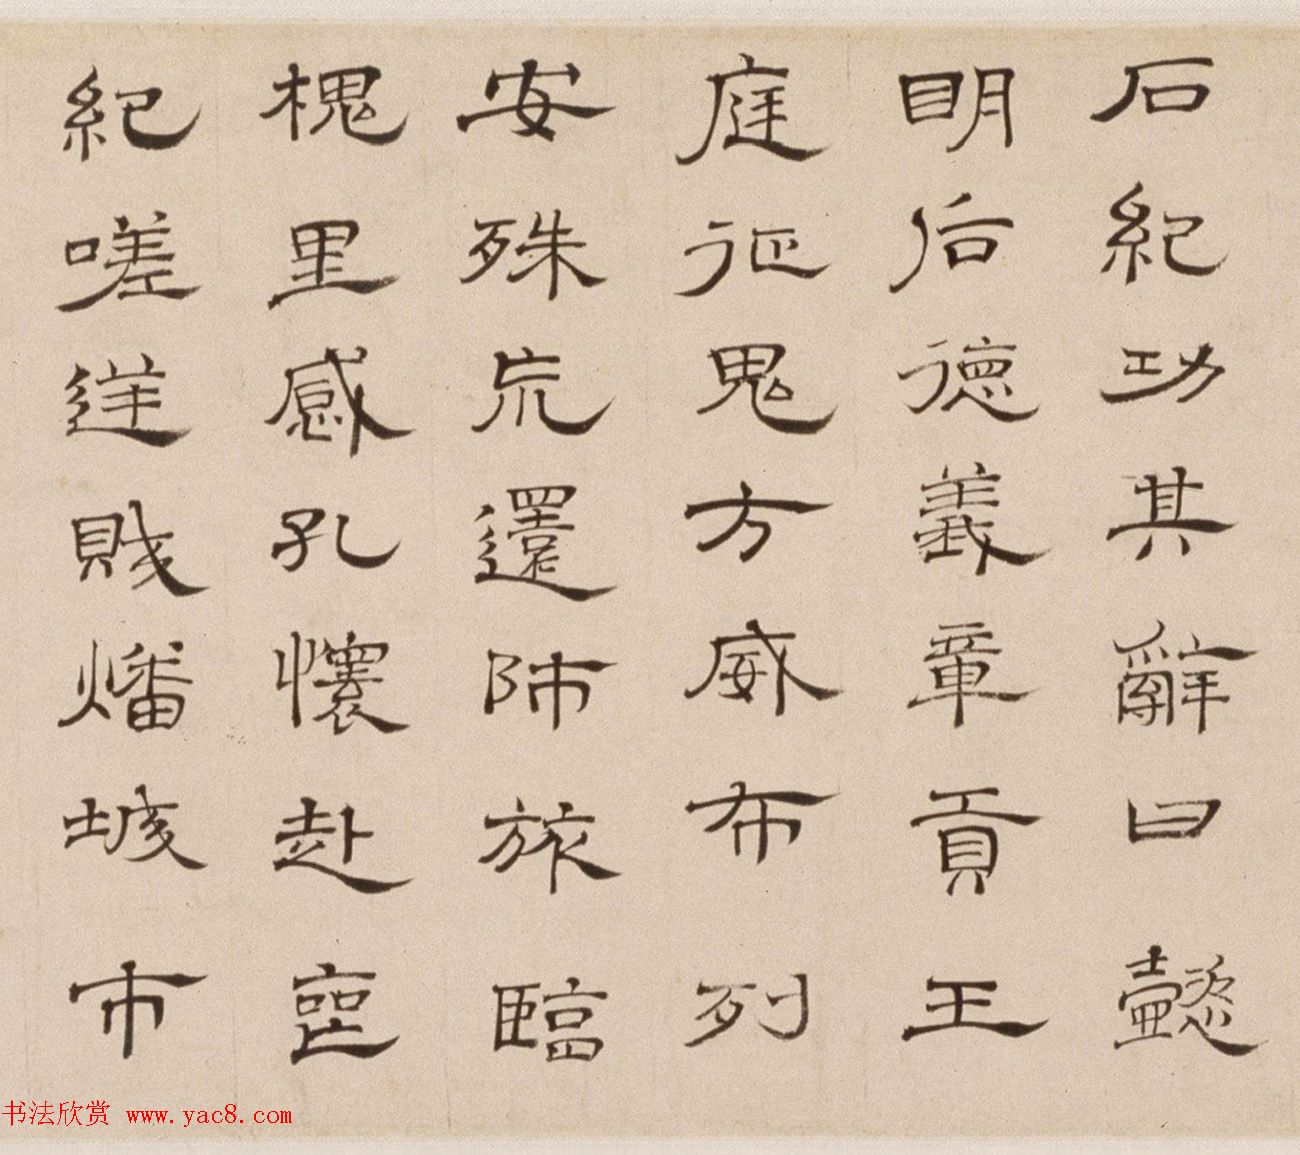 石紀功其辭曰懿
明后德義章貢王
庭征鬼方威布列
安殊巟還師旅臨
槐里感孔懷赴喪
紀嗟逆賊燔城市
书法欣赏 www.yac8.com